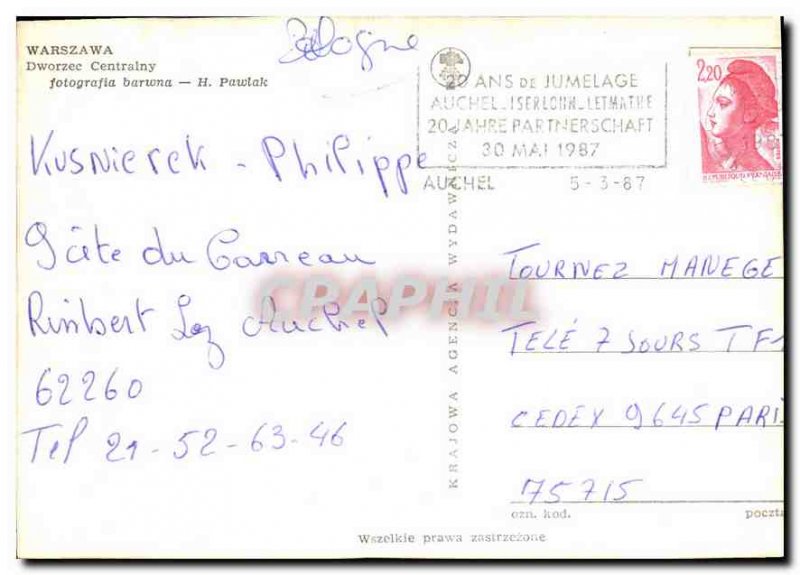 WARSZAWA
Dworzec Centralny
fotografia barwna — H. Pawlak
Pologne
20 ANS DE JUMELAGE
AUCHEL-ISERLOHN-LETMATHE
20 JAHRE PARTNERSCHAFT
30 MAI 1987
AUCHEL 5-3-87
2,20
Kusnierek - Philippe
Gâte du Carreau
Rimbert Lez Auchel
62260
Tel 21-52-63-46
CPAPHIL
KRAJOWA AGENCJA WYDAWNICZA
TOURNEZ MANEGE
TELÉ 7 JOURS TF1
CEDEX 9645 PARIS
75715
ozn. kod. poczta
Wszelkie prawa zastrzeżone